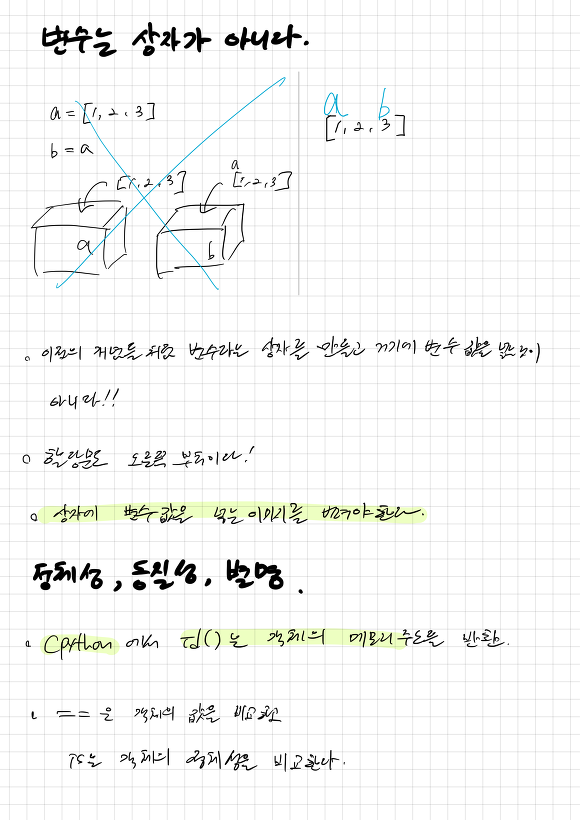 변수는 상자가 아니다.
a = [1, 2, 3]
b = a
[1, 2, 3]
a
[1, 2, 3]
a
b
a b
[1, 2, 3]
이전의 개념들 처럼 변수라는 상자를 만들고 거기에 변수 값을 넣는 것이
아니다!!
할당문도 오른쪽 부터이다!
상자에 변수 값을 넣는 이미지를 버려야한다.
정체성, 동질성, 별명.
Cpython 에서 id()는 객체의 메모리 주소를 반환.
== 은 객체의 값을 비교하고
is는 객체의 정체성을 비교한다.